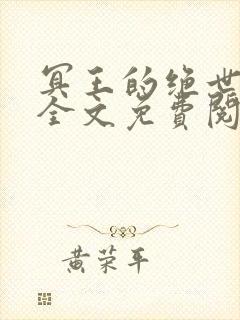 冥王的绝世
全文免費閱
黄荣平